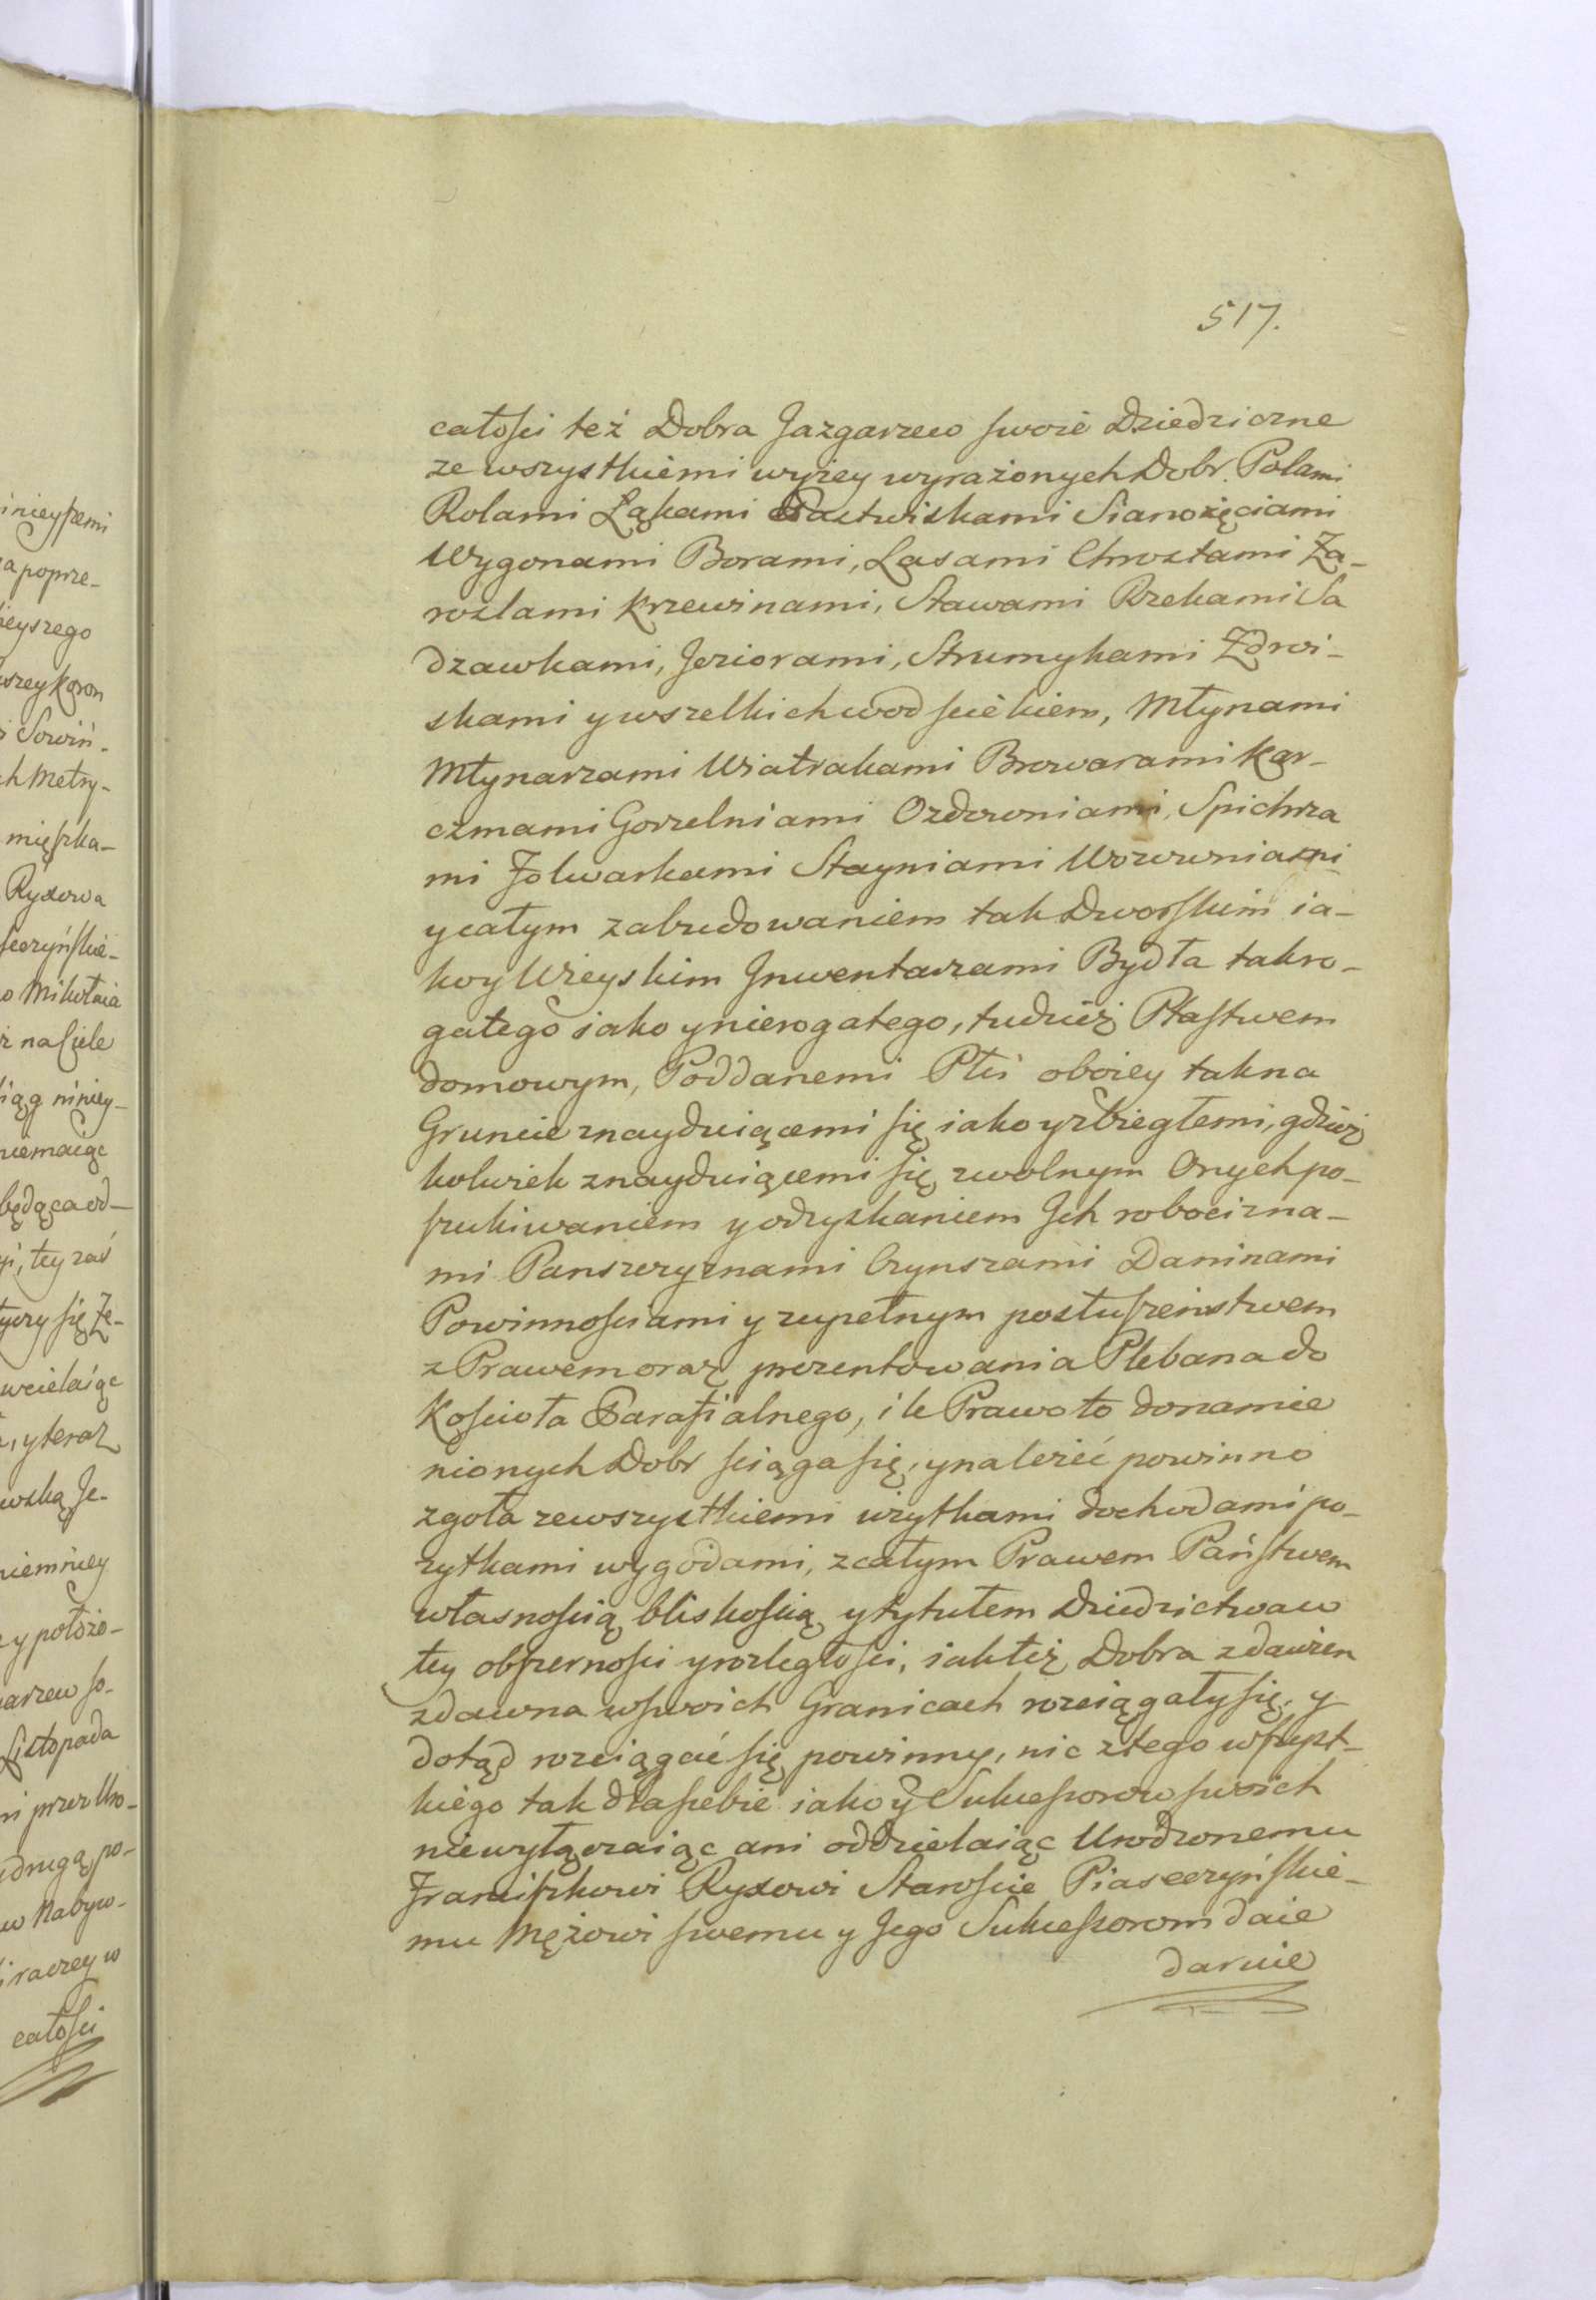 517.
całości też Dobra Jazgarzew swoie Dziedziczne
ze wszystkiemi wyżey wyrażonych Dobr Polami
Rolami Łąkami Pastwiskami Sianożęciami
Wygonami Borami, Lasami Chrostami Za-
roslami Krzewinami, Stawami Rzekami Sa
dzawkami, Jeziorami, Strumykami Zdroi-
skami y wszelkich wod sciekiem, Młynami
Młynarzami Wiatrakami Browarami Kar-
czmami Gorzelniami Ozdowniami, Spichrza
mi Folwarkami Stayniami Wozowniami
y całym zabudowaniem tak Dworskim ia-
ko y Wieyskim Inwentarzami Bydła tak ro-
gatego iako y nierogatego, tudzież Ptastwem
domowym, Poddanemi Płci oboiey tak na
Gruncie znayduiącemi się iako y zbiegłemi, gdzież
kolwiek znayduiącemi się z wolnym Onych po-
szukiwaniem y odzyskaniem Ich robocizna-
mi Panszczyznami Czynszami Daninami
Powinnościami y zupełnym posłuszeństwem
z Prawem oraz prezentowania Plebana do
Kościoła Parafialnego, ile Prawo to do namie
nionych Dobr sciąga się, y należeć powinno
zgoła ze wszystkiemi użytkami dochodami po-
żytkami wygodami, z całym Prawem Państwem
własnością bliskością y tytułem Dziedzictwa w
tey obszerności y rozległości, iak też Dobra zdawien
zdawna w swoich Granicach rozciągały się, y
dotąd rozciągać się powinny, nic z tego wszyst-
kiego tak dla siebie iako y Sukcessorow swoich
nie wyłączaiąc ani oddzielaiąc Urodzonemu
Franciszkowi Ryxowi Staroście Piaseczyńskie-
mu Mężowi swemu y Jego Sukcessorom daie
daruie
ninieyszemi
za poprze-
ieyszego
wszey Koron
Sowiń-
ch Metry-
mięszka-
Ryxowa
seczyńskie-
o Mikołaia
ż na Ciele
niniey-
niemaiąc
będąca od-
tey zaś
tyczy się Ze-
wcielaiąc
y teraz
wską Je-
niemniey
y położo-
arzew so-
Listopada
ni przez Uro-
drugą po-
w Nabyw-
raczey w
całości